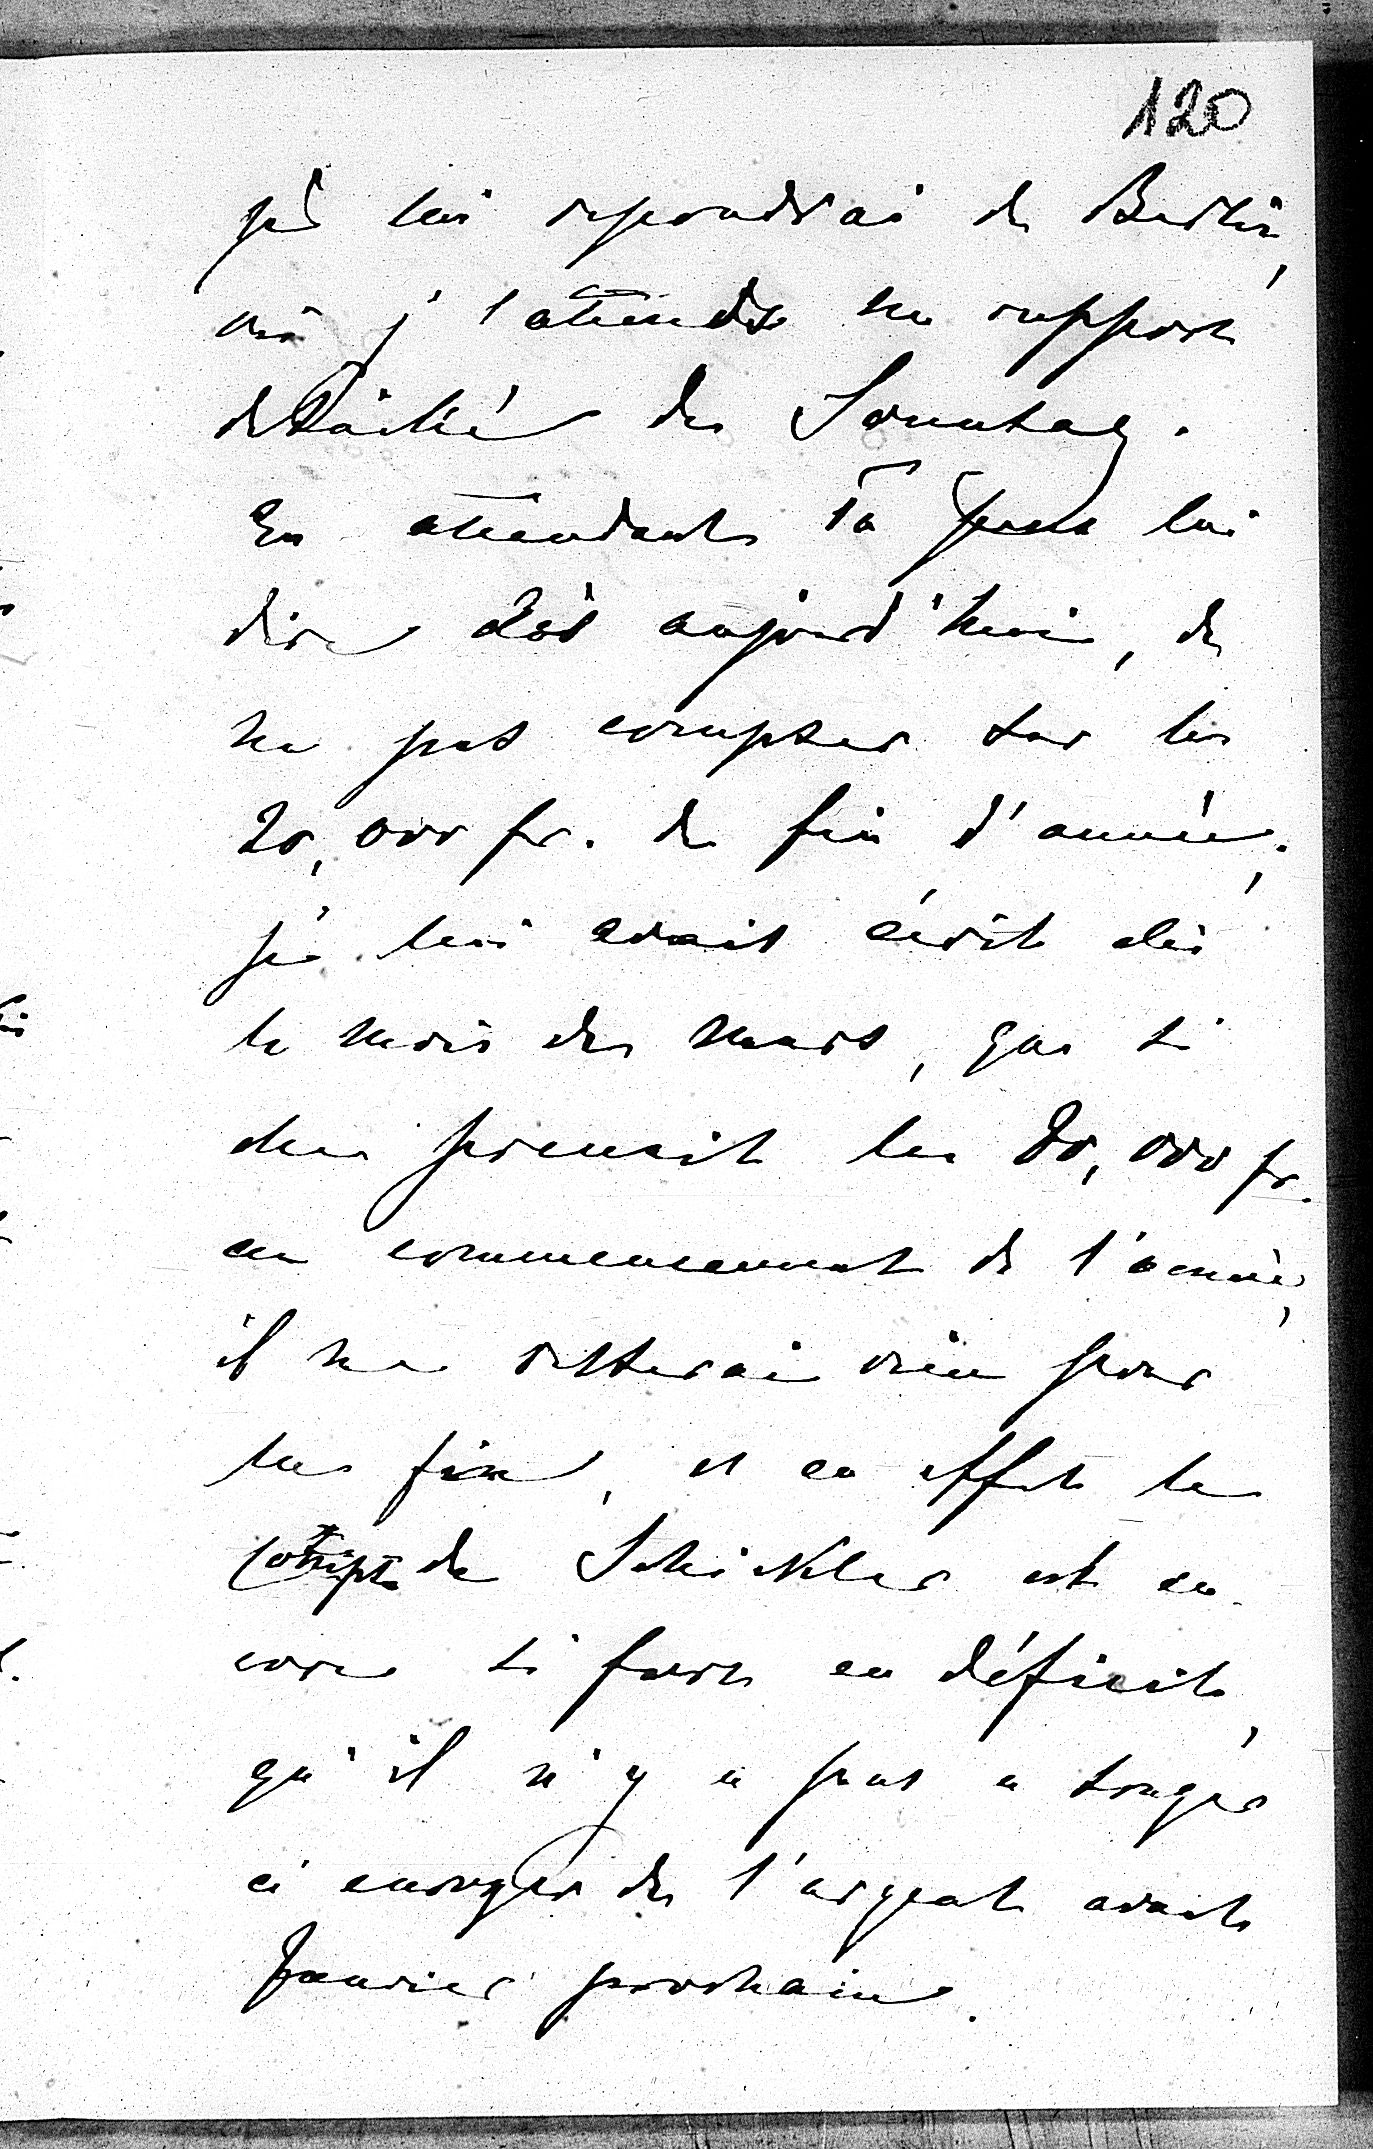 120
je lui repondrai de Berlin,
où j'attends un rapport
détaillé de Sonntag.
En attendant Tu peux lui
dire dès aujourd'hui, de
ne pas compter sur les
20,000 fr. de fin d'année;
je lui avais écrit dès
le mois de mars, que si
on prenait les 20,000 fr.
au commencement de l'année,
il ne resterai rien pour
la fin, et en effet le
compte de Schickler est en
core si fort en déficit,
qu'il n'y a pas a songer
à envoyer de l'argent avant
Janvier prochain.